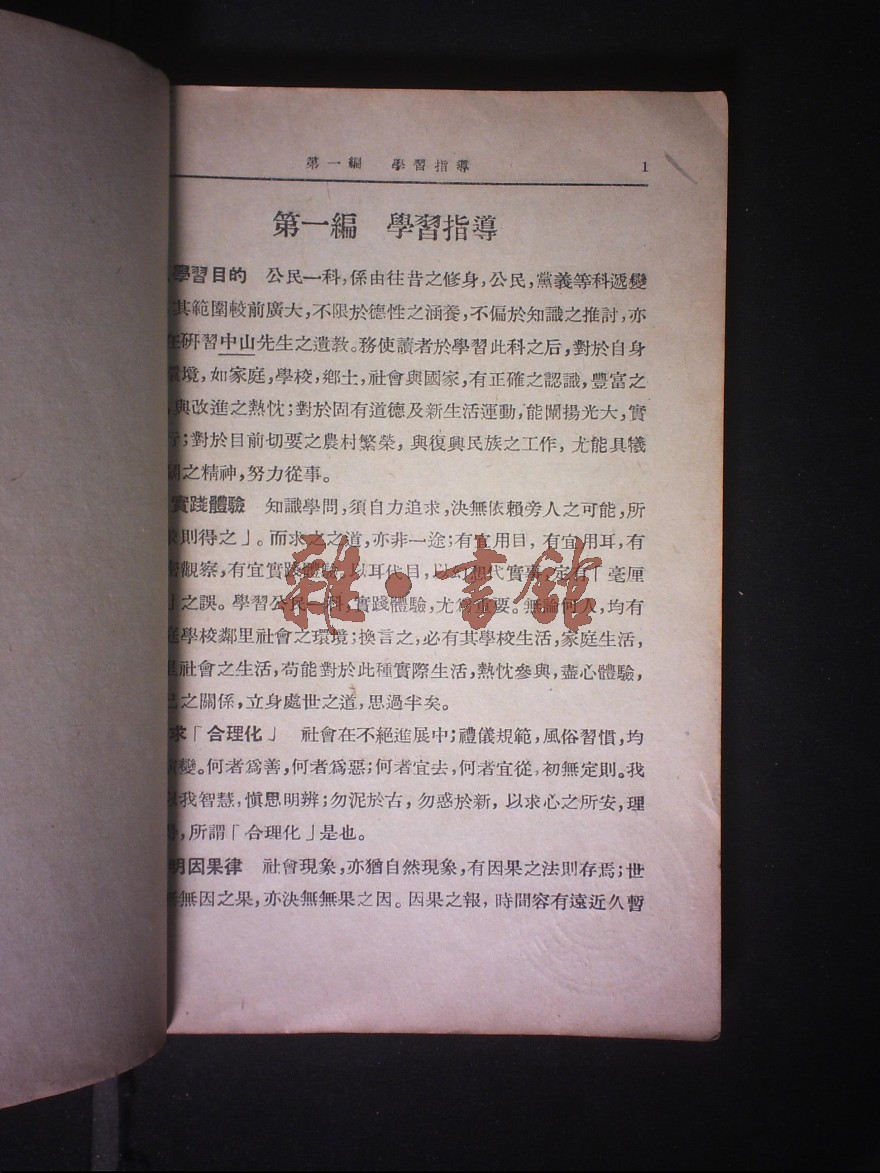 第一編　學習指導　1
第一編　學習指導
學習目的　公民一科，係由往昔之修身，公民，黨義等科遞變
其範圍較前廣大，不限於德性之涵養，不偏於知識之推討，亦
在硏習中山先生之遺教。務使讀者於學習此科之后，對於自身
環境，如家庭，學校，鄉土，社會與國家，有正確之認識，豐富之
與改進之熱忱；對於固有道德及新生活運動，能闡揚光大，實
行；對於目前切要之農村繁榮，與復興民族之工作，尤能具犧
之精神，努力從事。
實踐體驗　知識學問，須自力追求，決無依賴旁人之可能，所
則得之」。而求之之道，亦非一途；有宜用目，有宜用耳，有
觀察，有宜實踐體驗，以耳代目，以幻想代實事，定有「毫厘
」之誤。學習公民一科，實踐體驗，尤爲重要。無論何人，均有
庭學校鄰里社會之環境；換言之，必有其學校生活，家庭生活，
里社會之生活，苟能對於此種實際生活，熱忱參與，盡心體驗，
己之關係，立身處世之道，思過半矣。
求「合理化」　社會在不絕進展中；禮儀規範，風俗習慣，均
變。何者爲善，何者爲惡；何者宜去，何者宜從，初無定則。我
以我智慧，愼思明辨；勿泥於古，勿惑於新，以求心之所安，理
，所謂「合理化」是也。
明因果律　社會現象，亦猶自然現象，有因果之法則存焉；世
無因之果，亦決無無果之因。因果之報，時間容有遠近久暫
雜·書館